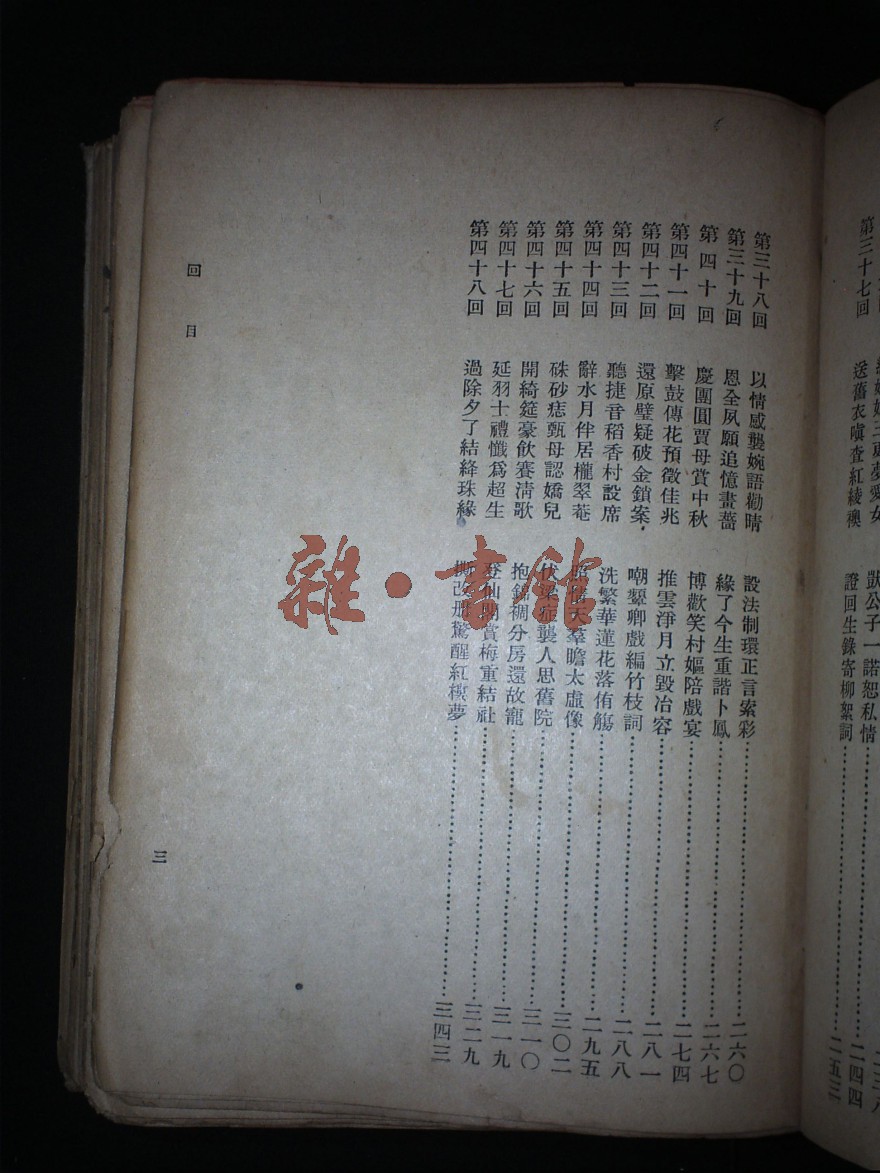 三更夢愛女 獃公子一諾恕私情 二四四
第三十七回 送舊衣嗔查紅綾襖 證回生錄寄柳絮詞 二五三
第三十八回 以情感襲婉語勸晴 設法制環正言索彩 二六〇
第三十九回 恩全夙願追憶畫薔 緣了今生重諧卜鳳 二六七
第四十回 慶團圓賈母賞中秋 博歡笑村嫗陪戲宴 二七四
第四十一回 擊鼓傳花預徵佳兆 推雲淨月立毀冶容 二八一
第四十二回 還原璧疑破金鎖案 嘲顰卿戲編竹枝詞 二八八
第四十三回 聽捷音稻香村設席 洗繁華蓮花落侑觴 二九五
第四十四回 辭水月伴居櫳翠菴 情天羣瞻太虛像 三〇二
第四十五回 硃砂痣甄母認嬌兒 伏梁症襲人思舊院 三一〇
第四十六回 開綺筵豪飲賽清歌 抱錦裯分房還故寵 三一九
第四十七回 延羽士禮懺爲超生 登仙閣賞梅重結社 三二九
第四十八回 過除夕了結絳珠緣 改册驚醒紅樓夢 三四三
回目
三
雜·書館